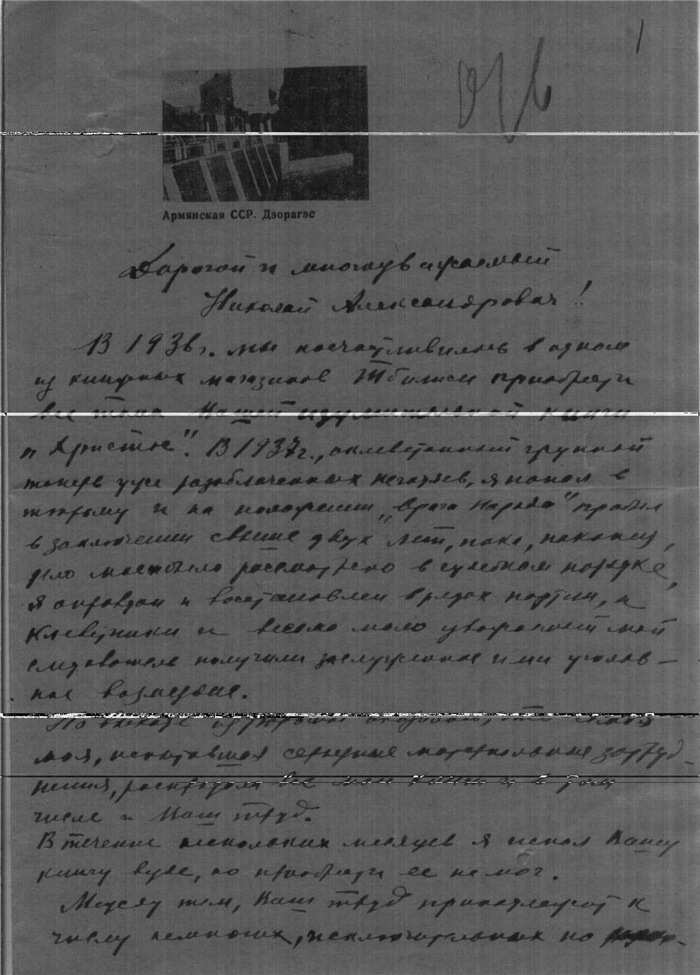 1
Армянская ССР. Дзорагэс
Дорогой и многоуважаемый
Николай Александрович!
В 1936г. мы посчастливилось в одном
из книжных магазинов Тбилиси приобрети
все тома Вашей изумительной книги
"Христос". В 1937г., оклеветанный группой
теперь уже разоблаченных негодяев, я попал в
тюрьму и на положении "врага народа" пробыл
в заключении свыше двух лет, пока, наконец,
дело мое было рассмотрено в судебном порядке,
я оправдан и восстановлен в рядах партии, а
клеветники и весьма мало уважаемый мой
следователь получили заслуженное ими уголов-
ное возмездие.
По выходе из тюрьмы что семья
моя, испытавшая серьезные материальные затруд-
нения, распродала все мои книги и в том
числе и Ваш труд.
В течение нескольких месяцев я искал Вашу
книгу везде, но приобрети ее не мог.
Между тем, Ваш труд принадлежит к
числу немногих, исключительных по